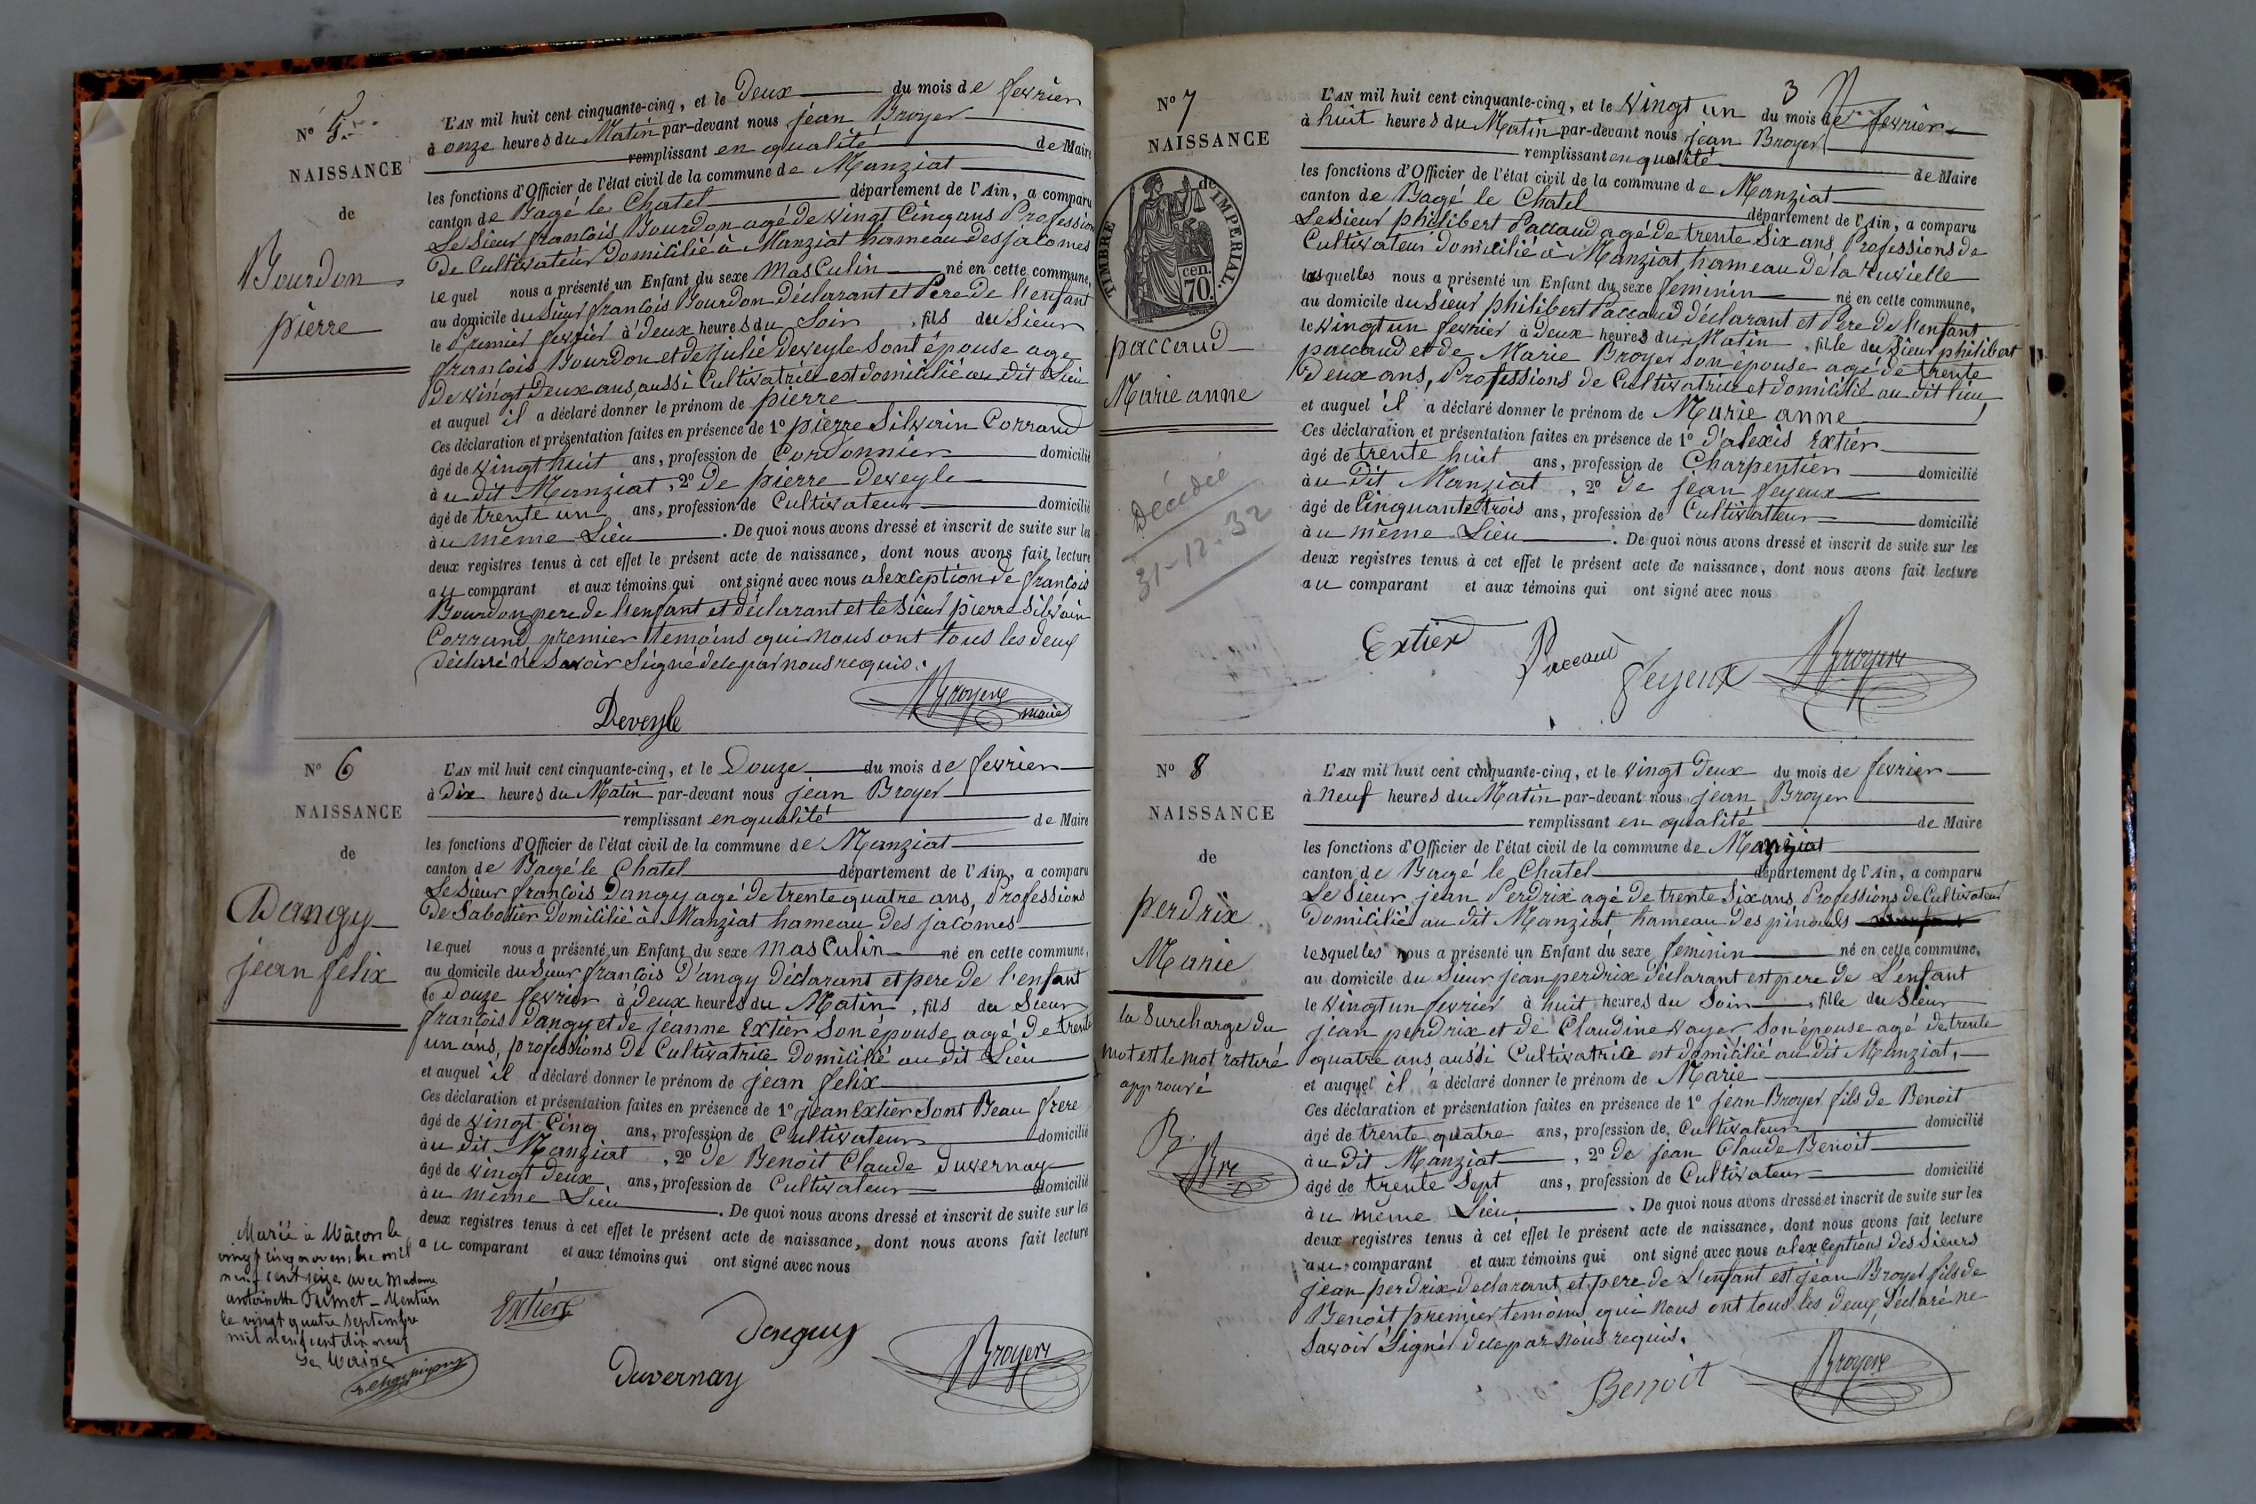 N° 5
NAISSANCE
de
Bourdon
pierre
L'AN mil huit cent cinquante-cinq, et le Deux du mois de fevrier
à onze heures du Matin par-devant nous jean Broyer
remplissant en qualité de Maire
les fonctions d'Officier de l'état civil de la commune de Manziat
canton de Bagé le Chatel département de l'Ain, a comparu
Le Sieur francois Bourdon agé de vingt Cinq ans Profession
De Cultivateur Domicilié à Manziat hameau des jalomes
lequel nous a présenté un Enfant du sexe masculin né en cette commune,
au domicile du Sieur francois Bourdon Déclarant et Pere De l'enfant
le Premier fevrier à deux heures du Soir, fils du Sieur
francois Bourdon et de Julie Deveyle sont épouse age
De vingt Deux ans, aussi Cultivatrice est domicilié au dit Lieu
et auquel il a déclaré donner le prénom de pierre
Ces déclaration et présentation faites en présence de 1° pierre Silvain Corrand
âgé de vingt huit ans, profession de Cordonnier domicilié
à u dit Manziat, 2° de pierre Deveyle
âgé de trente un ans, profession de Cultivateur domicilié
à u même Lieu. De quoi nous avons dressé et inscrit de suite sur les
deux registres tenus à cet effet le présent acte de naissance, dont nous avons fait lecture
au comparant et aux témoins qui ont signé avec nous alexception de françois
Bourdon pere de l'enfant et déclarant et le Sieur pierre Silvain
Corrand premier temoins qui nous ont tous les deux
déclaré ne savoir signé de ce par nous requis.
Deveyle
Broyer
maire
N° 6
NAISSANCE
de
Dangy
jean felix
L'AN mil huit cent cinquante-cinq, et le Douze du mois de fevrier
à Dix heures du Matin par-devant nous jean Broyer
remplissant en qualité de Maire
les fonctions d'Officier de l'état civil de la commune de Manziat
canton de Bagé le Chatel département de l'Ain, a comparu
Le Sieur francois Dangy agé de trente quatre ans, Professions
De Sabotier Domicilié à Manziat hameau des jalomes
lequel nous a présenté un Enfant du sexe masculin né en cette commune,
au domicile du Sieur francois D'angy Déclarant et pere de l'enfant
le Douze fevrier à deux heures du Matin, fils du Sieur
francois Dangy et de jeanne Extier Son epouse agé de trente
un ans, professions De Cultivatrice Domicilié au dit Lieu
et auquel il a déclaré donner le prénom de jean felix
Ces déclaration et présentation faites en présence de 1° jean Extier sont Beau frere
âgé de vingt Cinq ans, profession de Cultivateur domicilié
à u dit Manziat, 2° de Benoit Claude Duvernay
âgé de vingt deux, ans, profession de Cultivateur domicilié
à u même Lieu. De quoi nous avons dressé et inscrit de suite sur les
deux registres tenus à cet effet le présent acte de naissance, dont nous avons fait lecture
au comparant et aux témoins qui ont signé avec nous
Marié à Mâcon le
vingt cinq novembre mil
neuf cent seize avec Madame
antoinette Fumet - Mention
le vingt quatre septembre
mil neuf cent dix neuf
Le Maire
Extier
Danguy
Duvernay
Broyer
3
N° 7
NAISSANCE
de
TIMBRE IMPERIAL
70 cen.
paccaud
Marie anne
Décédée
31-12-32
L'AN mil huit cent cinquante-cinq, et le Vingt un du mois de fevrier
à huit heures du Matin par-devant nous jean Broyer
remplissant en qualité de Maire
les fonctions d'Officier de l'état civil de la commune de Manziat
canton de Bagé le Chatel département de l'Ain, a comparu
Le Sieur philibert Paccaud agé de trente Six ans Professions de
Cultivateur domicilié à Manziat hameau de la ruvielle
lesquelles nous a présenté un Enfant du sexe feminin né en cette commune,
au domicile du Sieur philibert Paccaud déclarant et Pere De l'enfant
le vingt un fevrier à Deux heures du Matin, fille du Sieur philibert
paccaud et de Marie Broyer son épouse agé de trente
Deux ans, Professions de Cultivatrice et domicilié au dit lieu,
et auquel il a déclaré donner le prénom de Marie anne
Ces déclaration et présentation faites en présence de 1° d'alexis Extier
âgé de trente huit ans, profession de Charpentier domicilié
à u Dit Manziat, 2° de jean feyeux
âgé de Cinquante trois ans, profession de Cultivateur domicilié
à u même Lieu. De quoi nous avons dressé et inscrit de suite sur les
deux registres tenus à cet effet le présent acte de naissance, dont nous avons fait lecture
au comparant et aux témoins qui ont signé avec nous
Extier
Paccaud
feyeux
Broyer
N° 8
NAISSANCE
de
perdrix
Marie
la Surcharge du
mot est le motратturé
approuvé
B.
L'AN mil huit cent cinquante-cinq, et le vingt Deux du mois de fevrier
à Neuf heures du Matin par-devant nous jean Broyer
remplissant en qualité de Maire
les fonctions d'Officier de l'état civil de la commune de Manziat
canton de Bagé le Chatel département de l'Ain, a comparu
Le Sieur jean Perdrix agé de trente Six ans Professions de Cultivateur
Domicilié au dit Manziat hameau des pinouds
lesquelles nous a présenté un Enfant du sexe feminin né en cette commune,
au domicile du Sieur jean perdrix déclarant est pere de L'enfant
le vingt un fevrier à huit heures du Soir, fille du Sieur
jean perdrix et de Claudine vayer son épouse agé de trente
quatre ans aussi Cultivatrice est domicilié au dit Manziat,
et auquel il a déclaré donner le prénom de Marie
Ces déclaration et présentation faites en présence de 1° jean Broyer fils de Benoit
âgé de trente quatre ans, profession de Cultivateur domicilié
à u Dit Manziat, 2° de jean Claude Benoit
âgé de trente Sept ans, profession de Cultivateur domicilié
à u même Lieu. De quoi nous avons dressé et inscrit de suite sur les
deux registres tenus à cet effet le présent acte de naissance, dont nous avons fait lecture
au comparant et aux témoins qui ont signé avec nous alexceptions des Sieurs
jean perdrix declarant et pere de L'enfant est jean Broyer fils de
Benoit premier temoins qui nous ont tous les deux déclaré ne
savoir Signer de ce par nous requis.
Benoit
Broyer